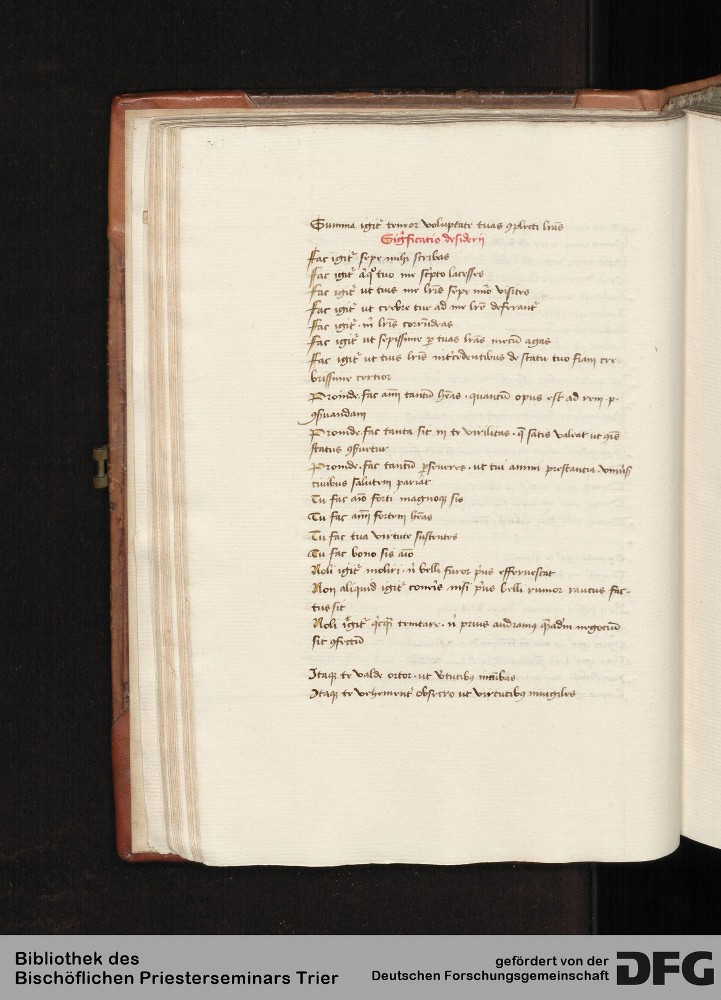 Summa igit᷑ teneor voluptate tuas ꝯplecti lr̃as
Sig̃ficatio desiderij
Fac igit᷑ sepe mihi scribas
Fac igit᷑ tuo me sc̓pto lacesses
Fac igit᷑ ut tuis me lr̃is sepe visites
Fac igit᷑ ut crebre tue ad me lr̃e deferant᷑
Fac igit᷑ · m̓ lr̃is corrñdeas
Fac igit᷑ ut sepissime ꝑ tuas lr̃as mecū agas
Fac igit᷑ ut tuis lr̃is int̓cedentibus de statu tuo fiam cre
brissime certior
Proinde · fac aīm tantū hẽas · quantū opus est ad rem · p ·
ꝯs̓uandam
Proinde · fac tanta sit in te virilitas · satis valeat ut
status ꝯs̓uetur
Proinde · fac tantū ꝑseueres · ut tui animi prestantia
ciuibus salutem pariat
Tu fac aīo forti magnoqꝫ sis
Tu fac aīm fortem hẽas
Tu fac tua virtute sustentes
Tu fac bono sis aīo
Noli igit᷑ moliri · n̓ belli furor p̓us efferuescat
Non aliquid igit᷑ nisi p̓us belli rumor raucus fac-
tus sit
Noli igit᷑ temtare · n̓ prius audiamꝰ negociū
sit ꝯfectū
Itaqꝫ te valde ortor · ut v̓tutibꝰ incūbas
Itaqꝫ te vehement᷑ obsecro ut virtutibꝰ inuigiles
Bibliothek des
Bischöflichen Priesterseminars Trier
gefördert von der
Deutschen Forschungsgemeinschaft
DFG